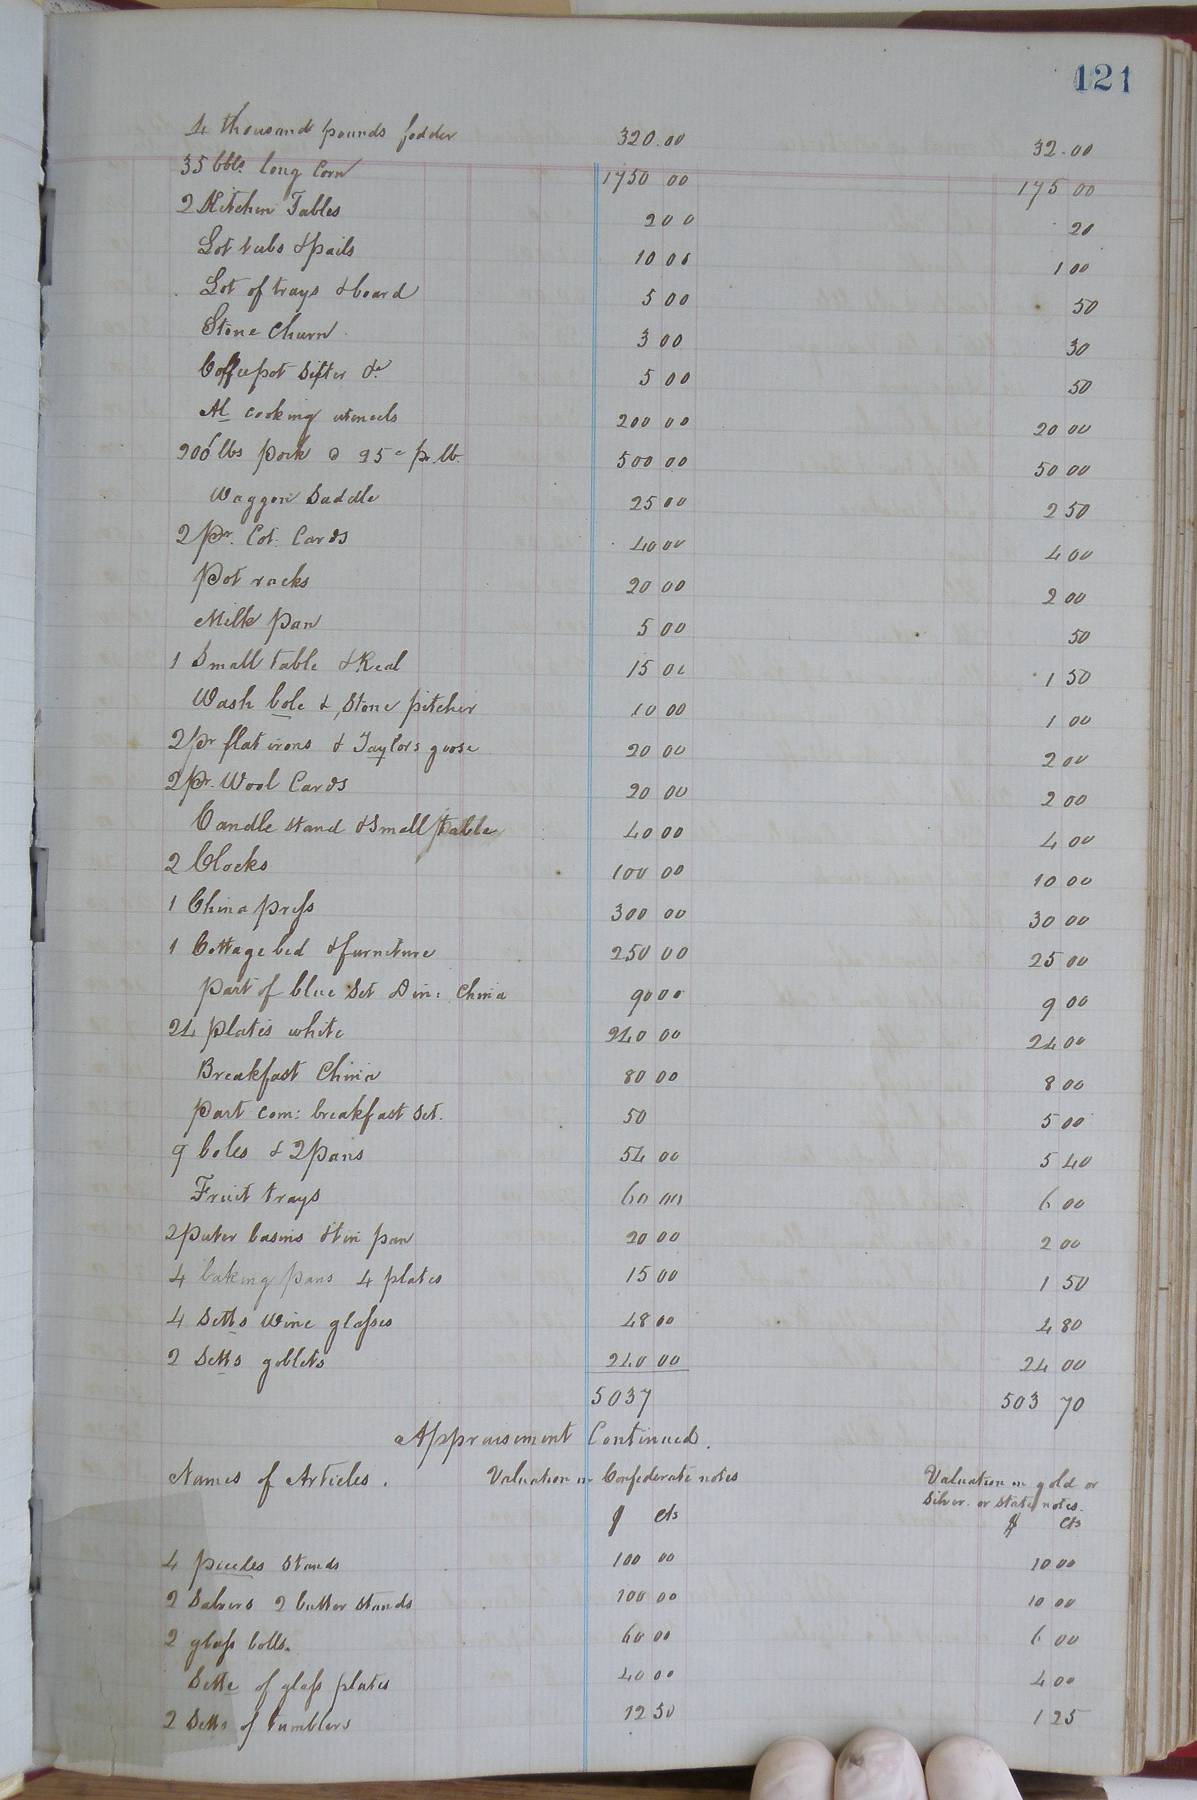 121
4 thousand pounds fodder 320.00 32.00
35 bbls long Corn 1750 00 175 00
2 Kitchen Tables 2 00 20
Lot tubs & pails 10 00 1 00
Lot of trays & board 5 00 50
Stone Churn 3 00 30
Coffeepot Sifter &c 5 00 50
All cooking utensels 200 00 20 00
200 lbs pork @ 25c pr lb. 500 00 50 00
Waggon Saddle 25 00 2 50
2 Pr. Cot. Cards 40 00 4 00
Pot racks 20 00 2 00
Milk Pan 5 00 50
1 Small table & Real 15 00 1 50
Wash bole & Stone pitcher 10 00 1 00
2 pr flat irons & Taylors goose 20 00 2 00
2 Pr. Wool Cards 20 00 2 00
Candle stand & Small table 40 00 4 00
2 Clocks 100 00 10 00
1 China press 300 00 30 00
1 Cottage bed & furneture 250 00 25 00
Part of blue Set Din: China 90 00 9 00
24 plates white 240 00 24 00
Breakfast China 80 00 8 00
Part com: breakfast Set. 50 5 00
9 boles & 2 Pans 54 00 5 40
Fruit trays 60 00 6 00
2 puter basins & tin pan 20 00 2 00
4 baking pans 4 plates 15 00 1 50
4 Setts Wine glasses 48 00 4 80
2 Setts goblets 240 00 24 00
5037 503 70
Appraisement Continued.
Names of Articles. Valuation in Confederate notes Valuation in gold or
Silver or State notes.
$ cts $ cts
4 piccles Stands 100 00 10 00
2 Salvers 2 butter stands 100 00 10 00
2 glass bolls. 60 00 6 00
Sette of glass plates 40 00 4 00
2 Setts of tumblers 12 50 1 25